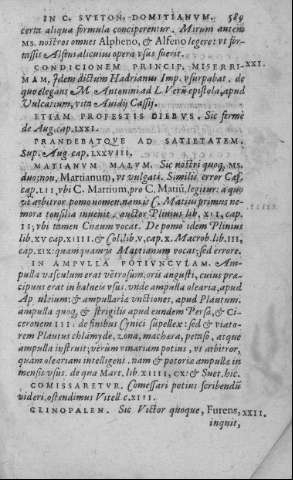 IN C. SVETON. DOMITIANVM. 589
certa aliqua formula conciperentur. Mirum autem
MS. nostros omnes Alpheno, & Alfeno legere: vt for-
tassis Alfeni alicuius opera vsus fuerit.
CONDICIONEM PRINCIP. MISERRI- XXI.
MAM. Idem dictum Hadrianus Imp. vsurpabat. de
quo elegans M. Antonini ad L. Verũ epistola, apud
Vulcatium, vita Auidij Cassij.
ETIAM PROFESTIS DIEBVS. Sic fermè
de Aug. cap. LXXI.
PRANDEBATQVE AD SATIETATEM.
Sup. Aug. cap. LXXVIII,
MATIANVM MALVM. Sic nostri quoq, MS.
duo; non, Martianum, vt vulgati. Similis error Cæs.
cap. LII, vbi C. Martium, pro C. Matiũ, legitur: à quo
vt arbitror pomo nomen. nam is C. Matius primus ne-
mora tonsilia inuenit. auctor Plinius lib. XII, cap.
II; vbi tamen Cnæum vocat. De pomo idem Plinius
lib. XV cap. XIIII. & Col. lib. V, cap. X. Macrob. lib. III,
cap. XIX: quamquam is Martianum vocat; sed errore.
IN AMPVLLA POTIVNCVLAM. Am-
pulla vasculum erat vētrosum, oris angusti, cuius præ-
cipuus erat in balneis vsus. vnde ampulla olearia, apud
Apuleium: & ampullaria vnctiones, apud Plautum.
ampulla quoq, & strigilis apud eundem Persa, & Ci-
ceronem IIII: de finibus Cynici supellex: sed & viato-
rem Plautus chlamyde, zona, machæra, petaso, atque
ampulla instruit; verùm vinariam potius, vt arbitror,
quàm oleariam intelligens. nam & potoria ampulla in
mensis vsus. de qua Mart. lib XIIII, CX: & Suet. hic.
COMISSARETVR. Comessari potius scribendũ
videri, ostendimus Vitell. c. XIII.
CLINOPALEN. Sic Victor quoque, Furens, XXII.
inquit,